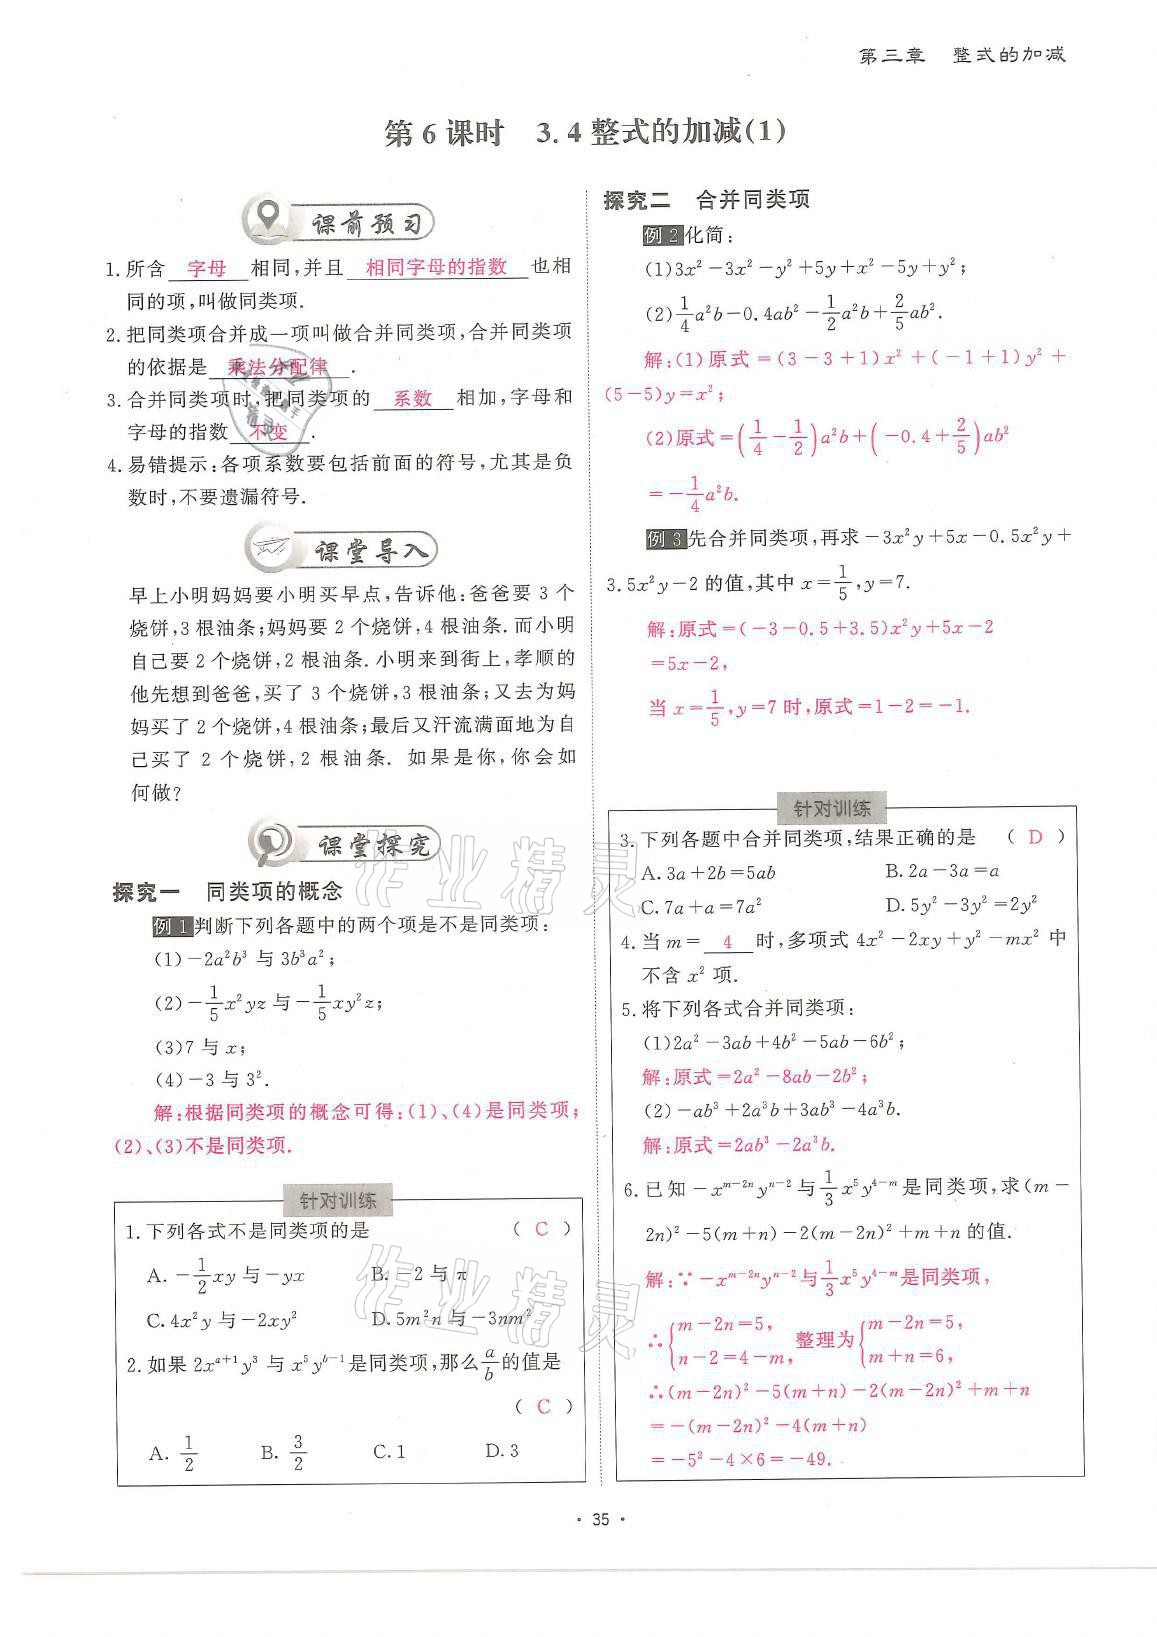 第三章 整式的加减
第 6 课时 3.4 整式的加减(1)
课前预习
1. 所含 字母 相同,并且 相同字母的指数 也相
同的项,叫做同类项.
2. 把同类项合并成一项叫做合并同类项,合并同类项
的依据是 乘法分配律 .
3. 合并同类项时,把同类项的 系数 相加,字母和
字母的指数 不变 .
4. 易错提示:各项系数要包括前面的符号,尤其是负
数时,不要遗漏符号.
课堂导入
早上小明妈妈要小明买早点,告诉他:爸爸要 3 个
烧饼,3 根油条;妈妈要 2 个烧饼,4 根油条.而小明
自己要 2 个烧饼,2 根油条.小明来到街上,孝顺的
他先想到爸爸,买了 3 个烧饼,3 根油条;又去为妈
妈买了 2 个烧饼,4 根油条;最后又汗流满面地为自
己买了 2 个烧饼,2 根油条. 如果是你,你会如
何做?
课堂探究
探究一 同类项的概念
例 1 判断下列各题中的两个项是不是同类项:
(1)-2a²b³ 与 3b³a²;
(2)-1/5x²yz 与 -1/5xy²z;
(3)7 与 x;
(4)-3 与 3².
解:根据同类项的概念可得:(1)、(4)是同类项;
(2)、(3)不是同类项.
针对训练
1. 下列各式不是同类项的是 ( C )
A. -1/2xy 与 -yx B. -2 与 π
C. 4x²y 与 -2xy² D. 5m²n 与 -3nm²
2. 如果 2xᵃ⁺¹y³ 与 x⁵yᵇ⁻¹ 是同类项,那么 a/b 的值是
( C )
A. 1/2 B. 3/2 C. 1 D. 3
探究二 合并同类项
例 2 化简:
(1)3x²-3x²-y²+5y+x²-5y+y²;
(2)1/4a²b-0.4ab²-1/2a²b+2/5ab².
解:(1)原式=(3-3+1)x²+(-1+1)y²+
(5-5)y=x²;
(2)原式=(1/4-1/2)a²b+(-0.4+2/5)ab²
=-1/4a²b.
例 3 先合并同类项,再求-3x²y+5x-0.5x²y+
3.5x²y-2 的值,其中 x=1/5,y=7.
解:原式=(-3-0.5+3.5)x²y+5x-2
=5x-2,
当 x=1/5,y=7 时,原式=1-2=-1.
针对训练
3. 下列各题中合并同类项,结果正确的是 ( D )
A. 3a+2b=5ab B. 2a-3a=a
C. 7a+a=7a² D. 5y²-3y²=2y²
4. 当 m= 4 时,多项式 4x²-2xy+y²-mx² 中
不含 x² 项.
5. 将下列各式合并同类项:
(1)2a²-3ab+4b²-5ab-6b²;
解:原式=2a²-8ab-2b²;
(2)-ab³+2a³b+3ab³-4a³b.
解:原式=2ab³-2a³b.
6. 已知-xᵐ⁻²ⁿyⁿ⁻² 与 1/3x⁵y⁴⁻ᵐ 是同类项,求(m-
2n)²-5(m+n)-2(m-2n)²+m+n 的值.
解:∵-xᵐ⁻²ⁿyⁿ⁻² 与 1/3x⁵y⁴⁻ᵐ 是同类项,
∴{m-2n=5, n-2=4-m, 整理为{m-2n=5, m+n=6,
∴(m-2n)²-5(m+n)-2(m-2n)²+m+n
=-(m-2n)²-4(m+n)
=-5²-4×6=-49.
· 35 ·
作业精灵
作业精灵